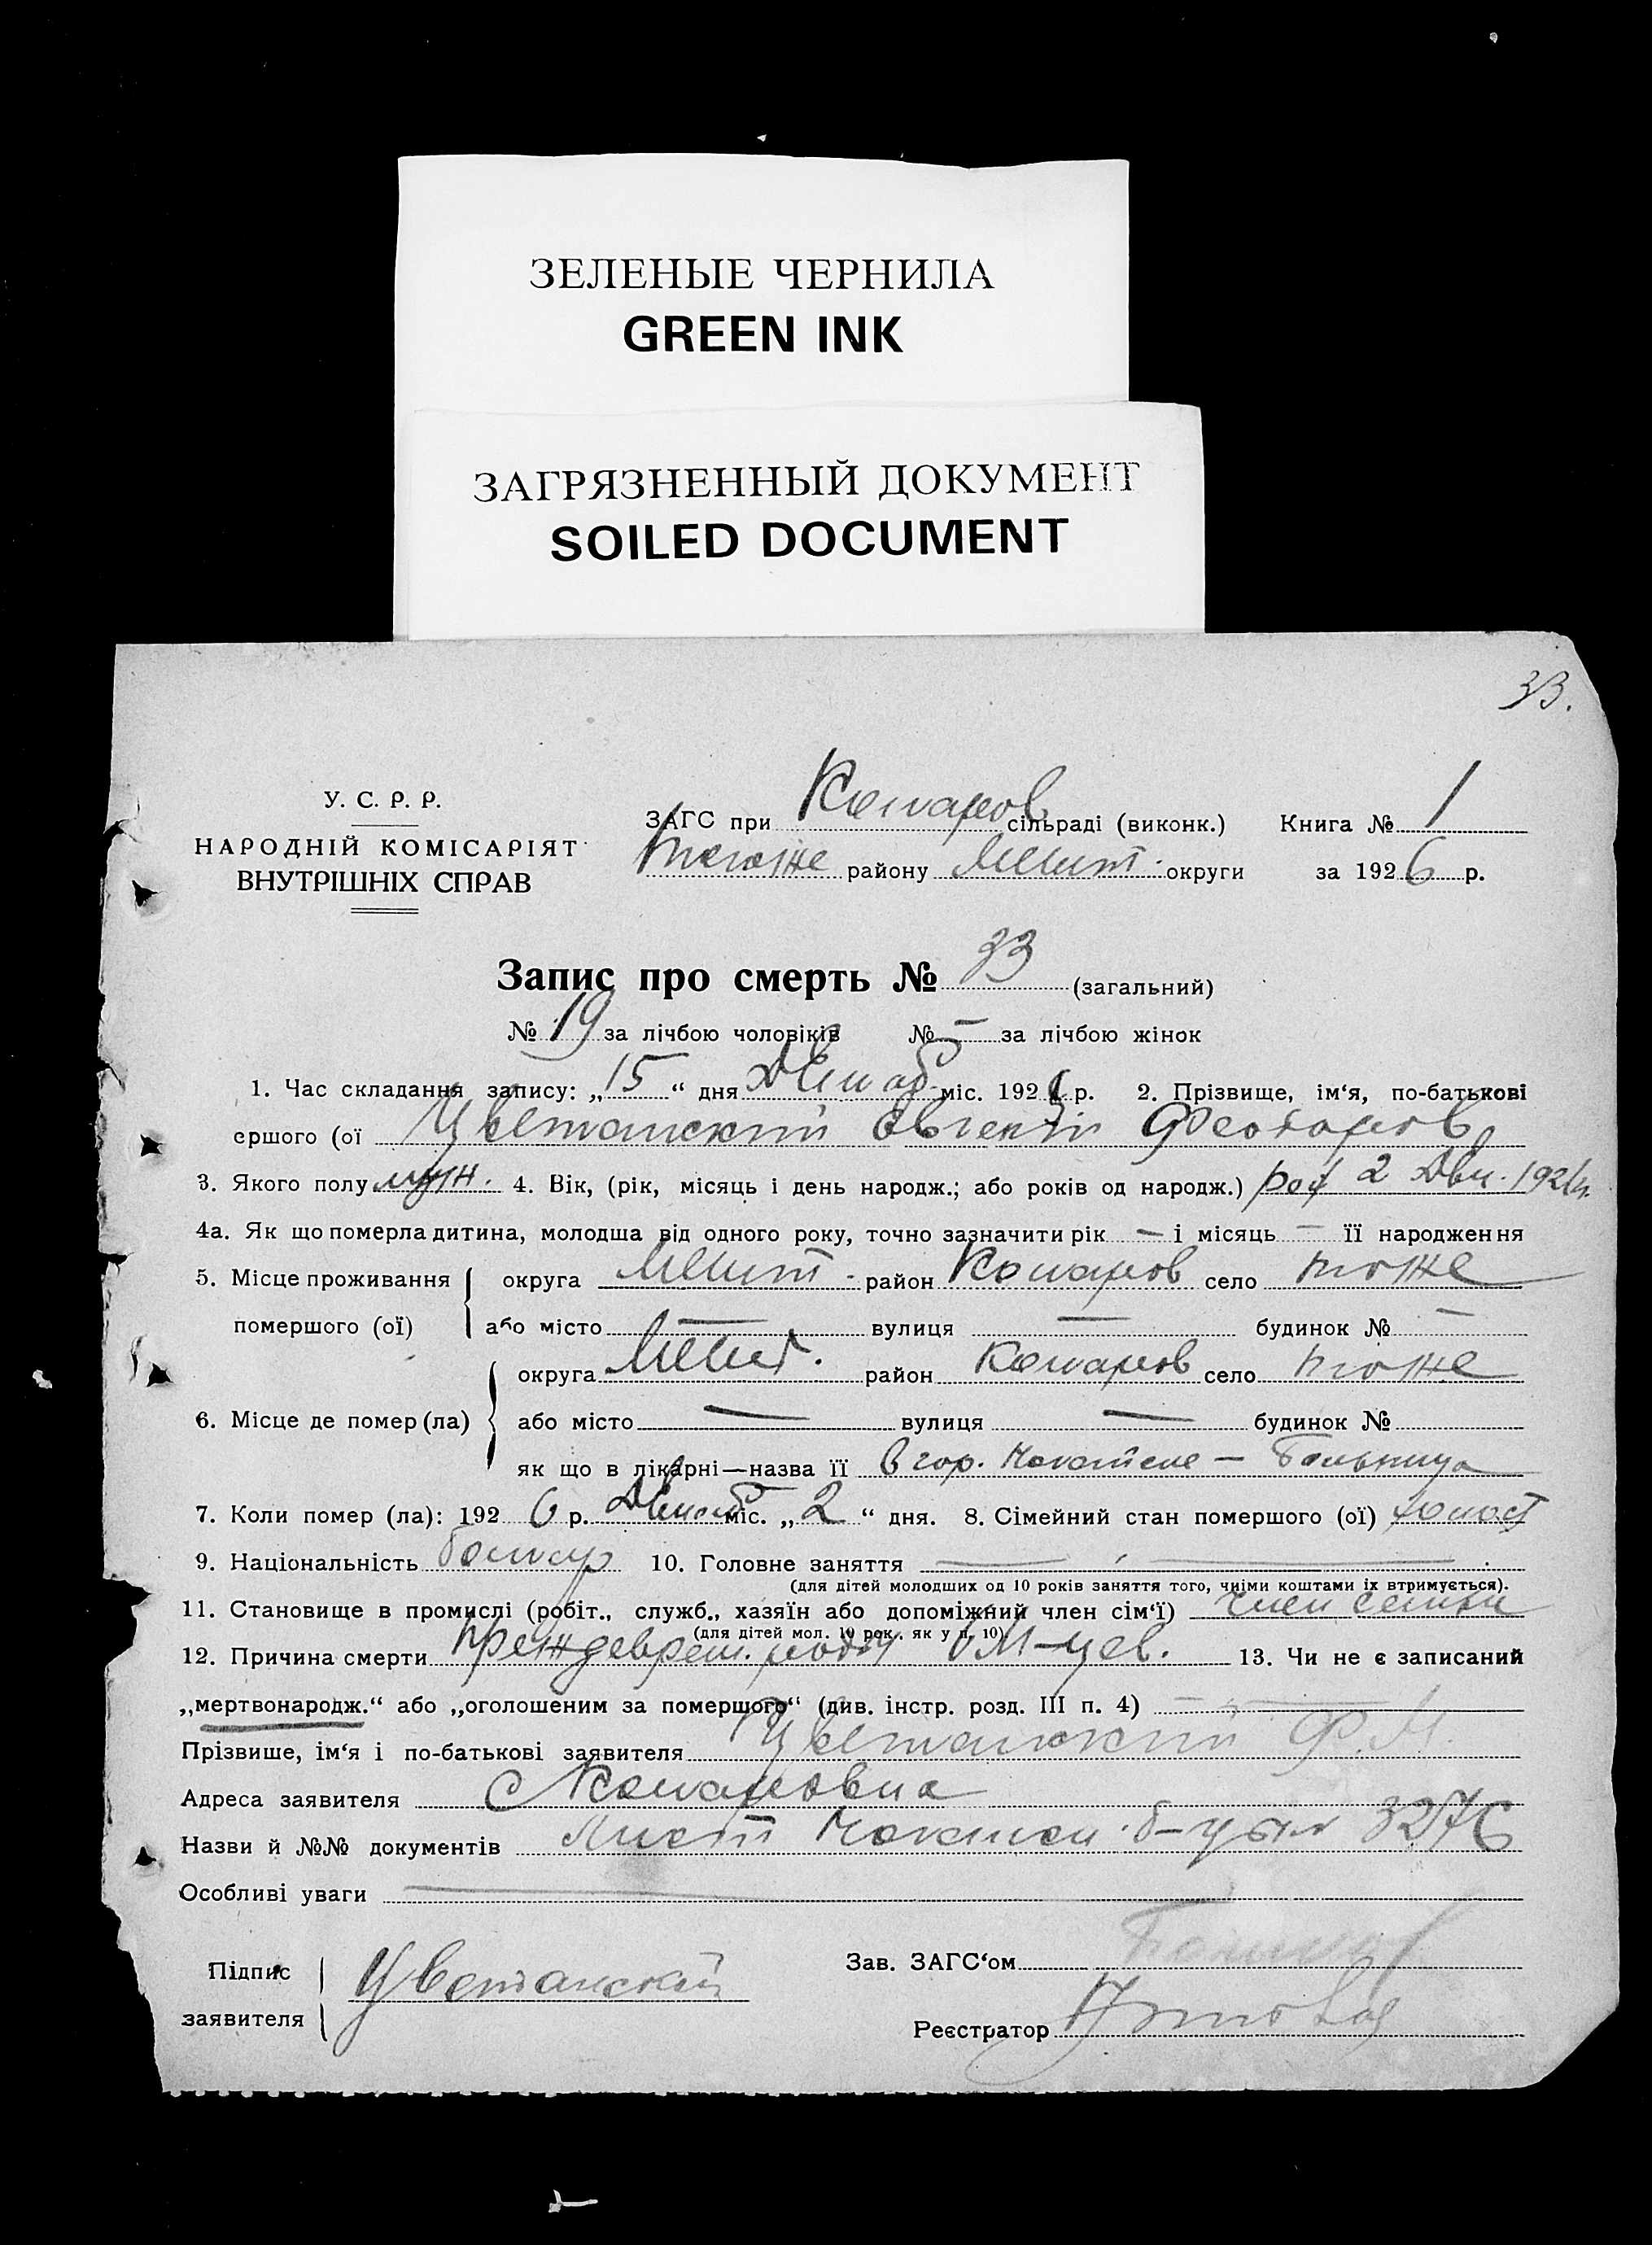 ЗЕЛЕНЫЕ ЧЕРНИЛА
GREEN INK
ЗАГРЯЗНЕННЫЙ ДОКУМЕНТ
SOILED DOCUMENT
33.
У. С. Р. Р.
НАРОДНІЙ КОМІСАРІЯТ
ВНУТРІШНІХ СПРАВ
ЗАГС при Комаров сільраді (виконк.) Книга № 1
тоже району округи за 1926 р.
Запис про смерть № 33 (загальний)
№ 19 за лічбою чоловіків № — за лічбою жінок
1. Час складання запису: „15“ дня міс. 1926 р. 2. Прізвище, ім‘я, по-батькові
ершого (ої Цветанский Евгений Феодоров
3. Якого полу муж. 4. Вік, (рік, місяць і день народж.; або років од народж.) 2
4а. Як що померла дитина, молодша від одного року, точно зазначити рік — і місяць — її народження
5. Місце проживання округа район Комаров село тоже
помершого (ої) або місто — вулиця — будинок № —
округа район Комаров село тоже
6. Місце де помер (ла) або місто — вулиця — будинок №
як що в лікарні—назва її в гор. — Больница
7. Коли помер (ла): 1926 р. міс. „2“ дня. 8. Сімейний стан помершого (ої) холост
9. Національність 10. Головне заняття — —
(для дітей молодших од 10 років заняття того, чиїми коштами їх втримується).
11. Становище в промислі (робіт., служб., хазяїн або допоміжний член сім‘ї) член семьи
(для дітей мол. 10 рок. як у п. 10)
12. Причина смерти преждеврем. роды М-цев. 13. Чи не є записаний
„мертвонародж.“ або „оголошеним за помершого“ (див. інстр. розд. III п. 4) —
Прізвише, ім‘я і по-батькові заявителя Цветанский Ф. М.
Адреса заявителя с Комаровка
Назви й №№ документів Лист 3276
Особливі уваги —
Підпис
заявителя Цветанский
Зав. ЗАГС‘ом
Реєстратор